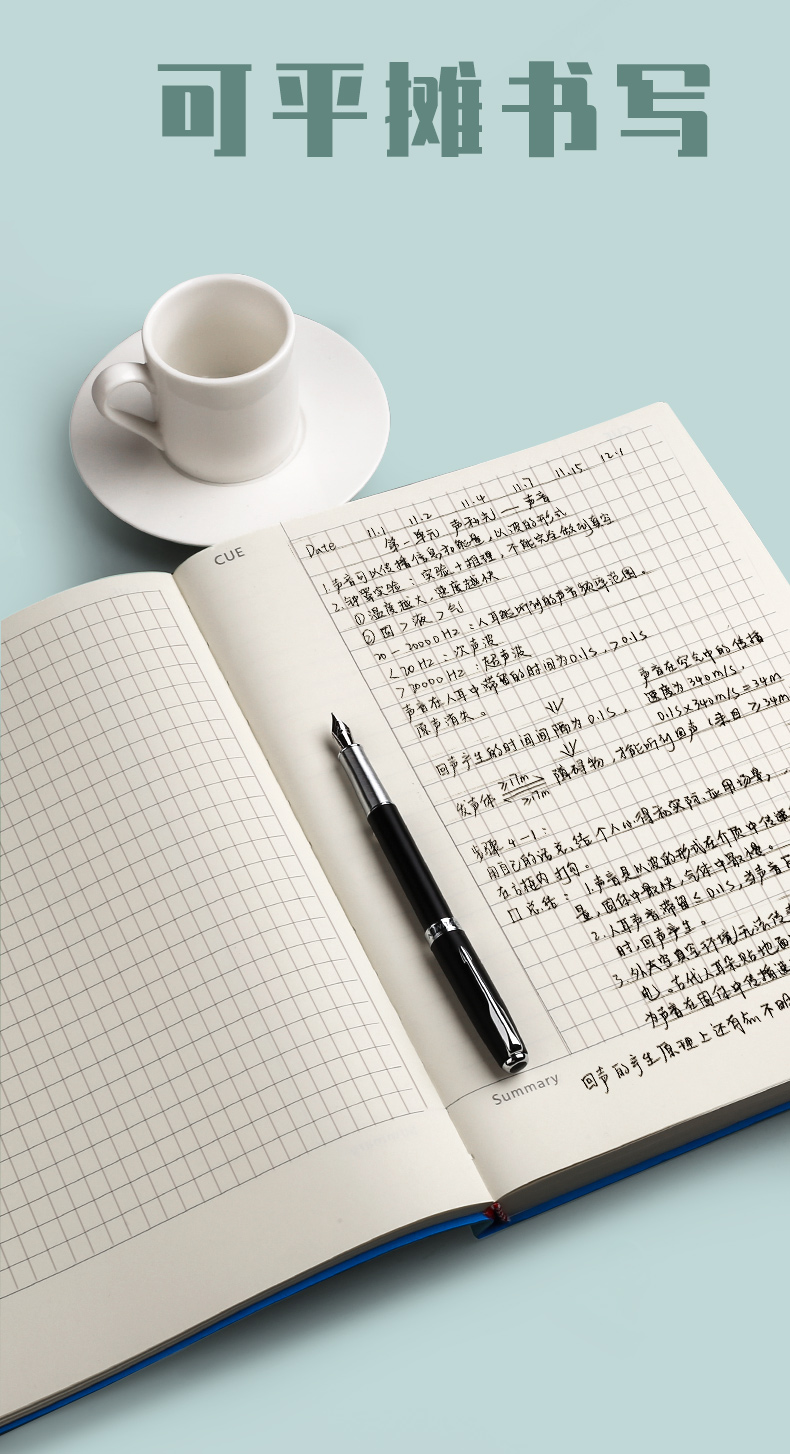 可平摊书写
CUE
Date 11.1 11.2 11.4 11.7 11.15 12.1
第一单元 声和光 — 声音
1.声音可以传播信息和能量,以波的形式
2.钟罩实验:实验+推理,不能完全做到真空
①温度越大,速度越快
②固>液>气
20-20000Hz:人耳能听到的声音频率范围。
<20Hz:次声波
>20000Hz:超声波
声音在人耳中滞留的时间为0.1s,>0.1s
原声消失。
声音在空气中的传播
速度为340m/s,
0.1s×340m/s=34m
回声产生的时间间隔为0.1s,
发声体 ≥17m ≥17m 障碍物,才能听到回声(来回≥34m
步骤4-1:
用自己的话总结个人心得和实际应用场景,
在方框内打勾。
口总结:1.声音是以波的形式在介质中传递
量,固体中最快,气体中最慢。
2.人耳声音滞留≤0.1s,当声音
时,回声产生。
3.外太空真空环境无法传
电。古代人耳朵贴地面
为声音在固体中传播速
Summary
回声的产生原理上还有些不明